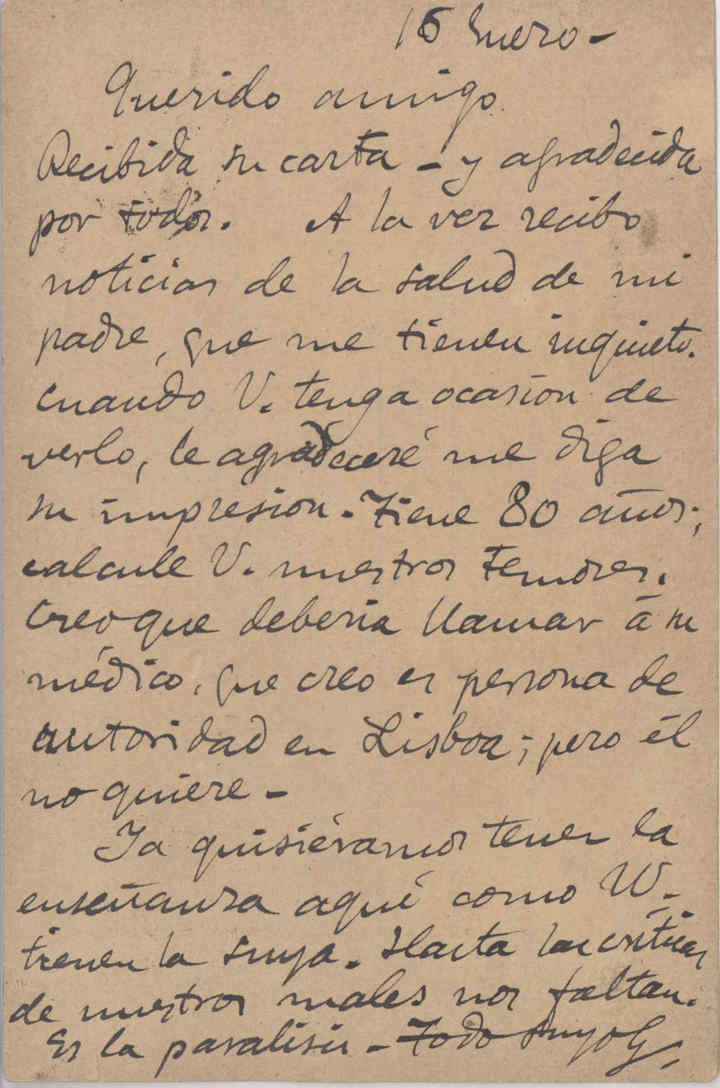 15 Enero -
Querido amigo
Recibida su carta - y agradecida
por todos. A la vez recibo
noticias de la salud de mi
padre, que me tienen inquieto.
Cuando V. tenga ocasion de
verlo, le agradeceré me diga
su impresion. Tiene 80 años;
calcule V. nuestros temores.
Creo que deberia llamar á su
médico, que creo es persona de
autoridad en Lisboa; pero él
no quiere -
Ya quisiéramos tener la
enseñanza aquí como VV.
tienen la suya. Hasta las críticas
de nuestros males nos faltan.
Es la paralisis - Todo suyo G.